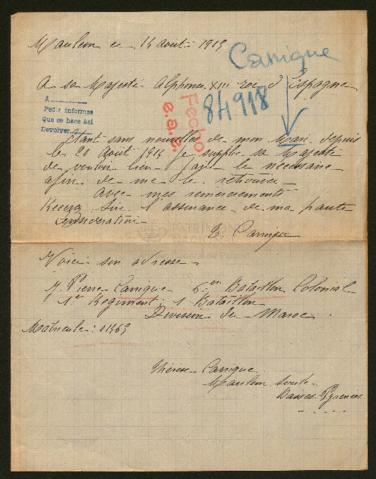 Mauléon ce 14 août 1915
Canigue
A sa Majesté Alphonse XIII roi d'Espagne
84918
A
Pedir informes
que se hace así
Devolver
Fecho
Etant sans nouvelles de mon Mari depuis
le 28 Août 1914 je supplie sa Majesté
de vouloir bien faire le nécessaire
afin de me le retrouver
avec mes remerciements
Recevez Sire l'assurance de ma haute
considération
T. Canigue
Voici son adresse
M. Pierre Canigue Bataillon Colonial
1er Régiment 1 Bataillon
Division du Maroc
Matricule :
Thérèse Canigue
Mauléon Soule
Basses Pyrénées